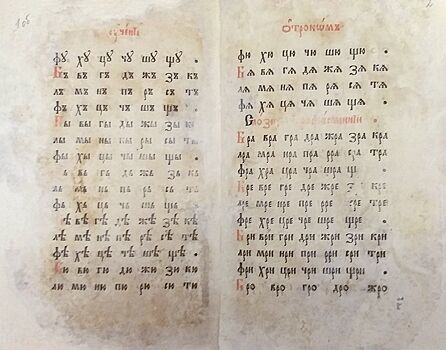 ꙋченїе
фꙋ хꙋ цꙋ чꙋ шꙋ щꙋ
Бъ въ гъ дъ жъ зъ къ
лъ мъ нъ пъ ръ съ тъ
фъ хъ цъ чъ шъ щъ
Бы вы гы ды жы зы кы
лы мы ны пы ры сы ты
фы хы цы чы шы щы
ь вь гь дь жь зь кь
ль мь нь пь рь сь ть
фь хь ць чь шь щь
ѣ вѣ гѣ дѣ жѣ зѣ кѣ
лѣ мѣ нѣ пѣ рѣ сѣ тѣ
фѣ хѣ цѣ чѣ шѣ щѣ
Би ви ги ди жи зи ки
ли ми ни пи ри си ти
отрокѡмъ
фи хи ци чи ши щи
Бѧ вѧ гѧ дѧ жѧ зѧ кѧ
лѧ мѧ нѧ пѧ рѧ сѧ тѧ
фѧ хѧ цѧ чѧ шѧ щѧ
Бра вра гра дра жра зра кра
лра мра нра пра рра сра тра
фра хра цра чра шра щ
Бре вре гре дре жре кре
фре хре цре чре шре щре
Бри ври гри дри жри зри кри
лри мри нри при рри сри три
фри хри цри чри шри щри
Бро вро гро дро жро